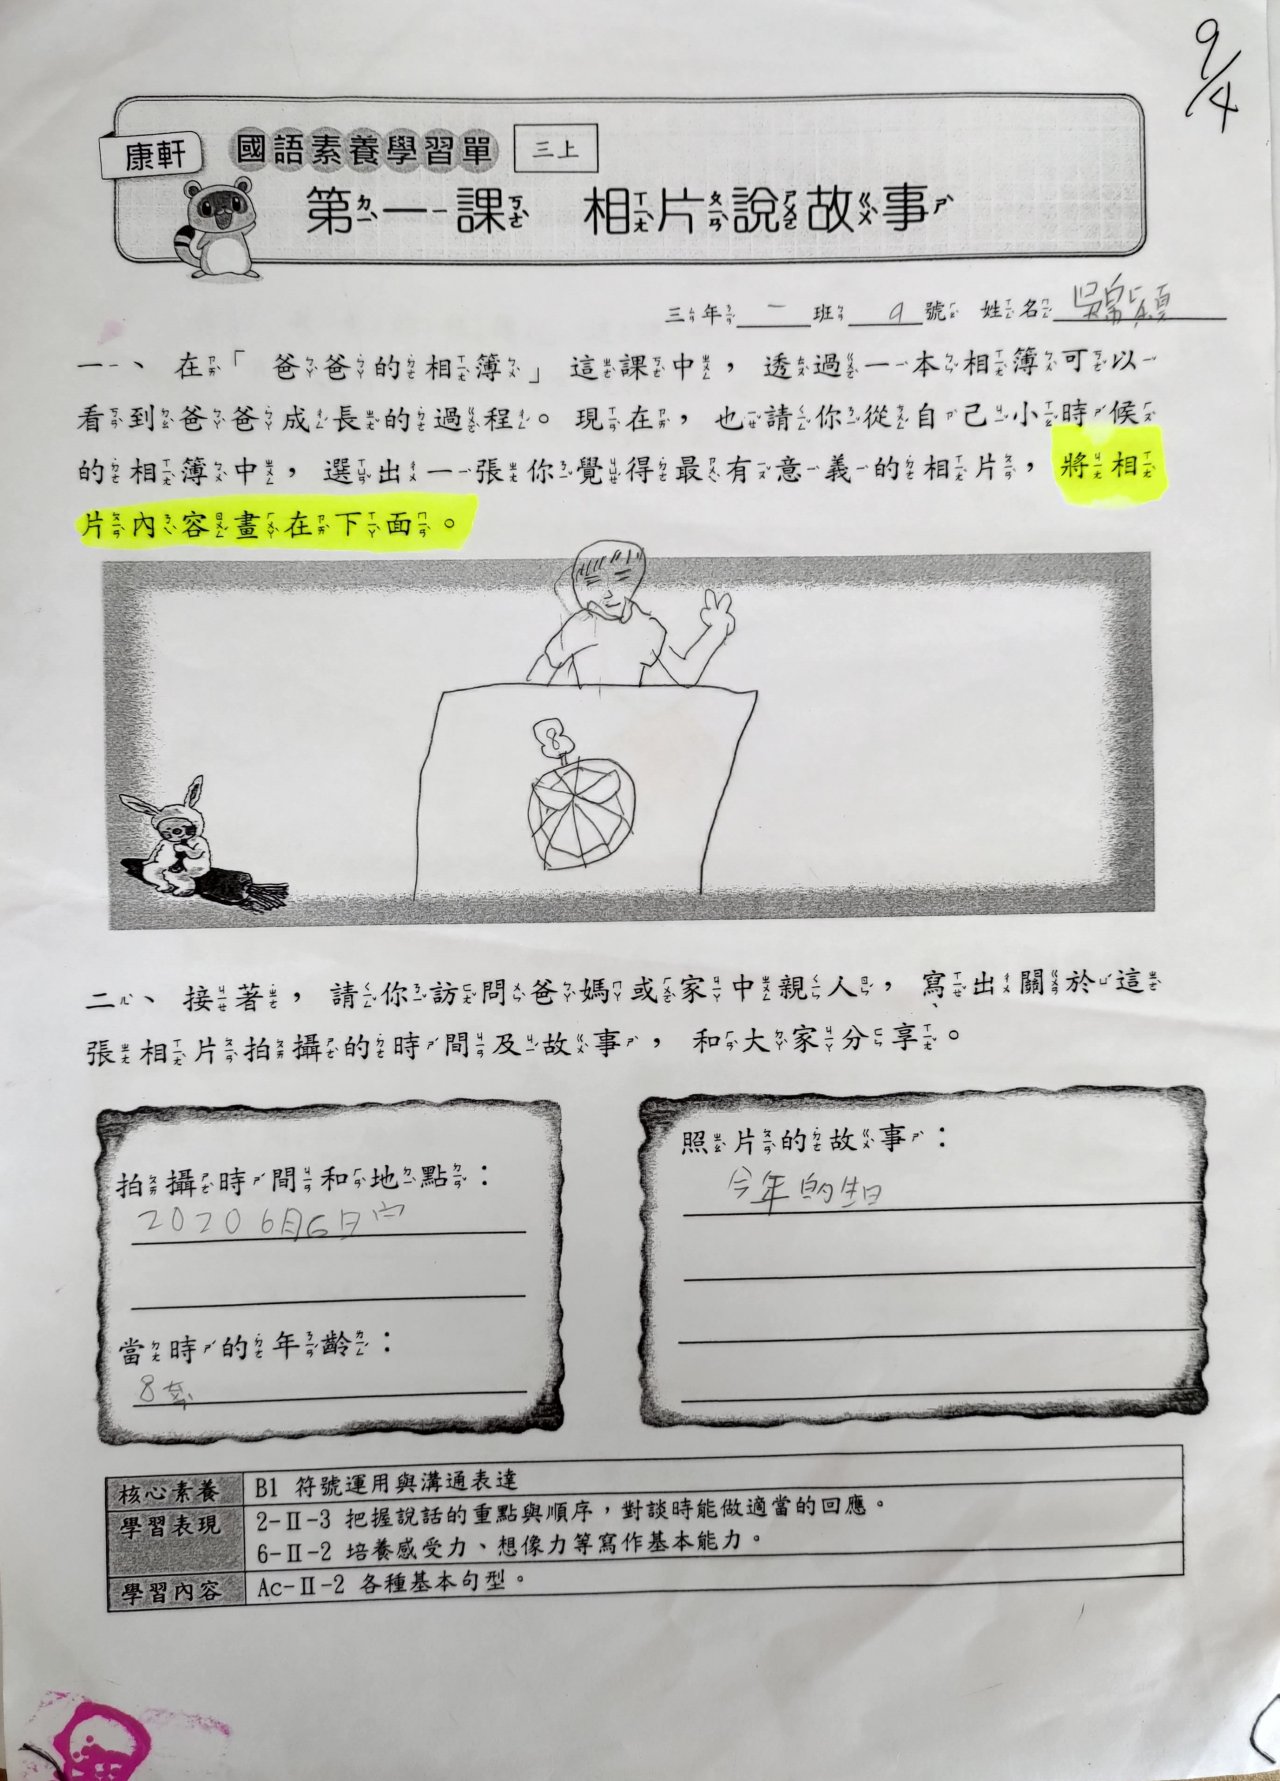 9/4
康軒
國語素養學習單 三上
第一課 相片說故事
三年一班9號 姓名
一、在「爸爸的相簿」這課中，透過一本相簿可以
看到爸爸成長的過程。現在，也請你從自己小時候
的相簿中，選出一張你覺得最有意義的相片，將相
片內容畫在下面。
8
二、接著，請你訪問爸媽或家中親人，寫出關於這
張相片拍攝的時間及故事，和大家分享。
拍攝時間和地點：
2020 6月6日
當時的年齡：
8
照片的故事：
今年的生日
核心素養 B1 符號運用與溝通表達
學習表現 2-Ⅱ-3 把握說話的重點與順序，對談時能做適當的回應。
6-Ⅱ-2 培養感受力、想像力等寫作基本能力。
學習內容 Ac-Ⅱ-2 各種基本句型。